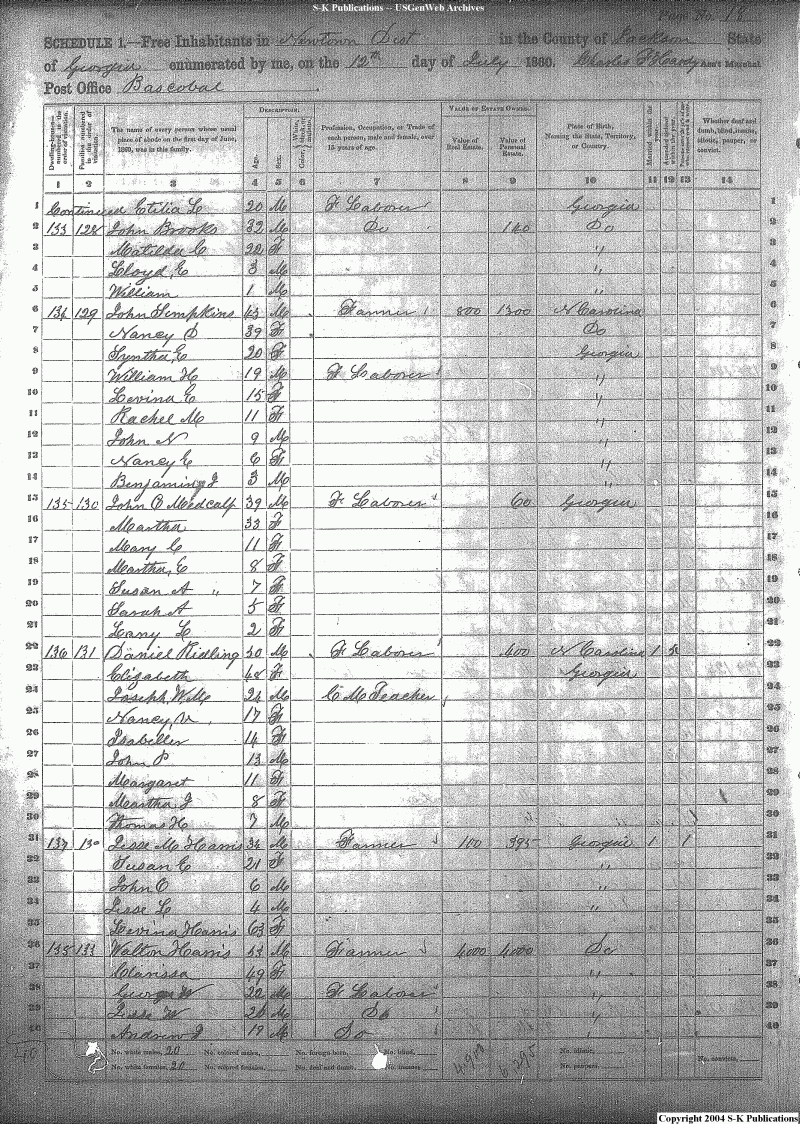 S-K Publications -- USGenWeb Archives
Page No. 18
SCHEDULE 1.—Free Inhabitants in Newtown Dist in the County of Jackson State
of Georgia enumerated by me, on the 12th day of July 1860. Charles Hardy Ass't Marshal
Post Office Bascobal
DESCRIPTION. VALUE OF ESTATE OWNED.
Dwelling-houses—numbered in the order of visitation. Families numbered in the order of visitation. The name of every person whose usual place of abode on the first day of June, 1860, was in this family. Age. Sex. Color, White, black, or mulatto. Profession, Occupation, or Trade of each person, male and female, over 15 years of age. Value of Real Estate. Value of Personal Estate. Place of Birth, Naming the State, Territory, or Country. Married within the year. Whether deaf and dumb, blind, insane, idiotic, pauper, or convict.
1 2 3 4 5 6 7 8 9 10 11 12 13 14
1 Continued Etilia L 20 M F Laborer Georgia 1
2 133 128 John Brooks 32 M Do 140 Do 2
3 Matilda C 22 F " 3
4 Lloyd E 3 M " 4
5 William 1 M " 5
6 134 129 John Sempkins 43 M Farmer 800 1300 N Carolina 6
7 Nancy D 39 F Do 7
8 Syntha E 20 F Georgia 8
9 William H 19 M F Laborer " 9
10 Levina E 15 F " 10
11 Rachel M 11 F " 11
12 John N 9 M " 12
13 Nancy E 6 F " 13
14 Benjaming J 3 M " 14
15 135 130 John O Medcalf 39 M F Laborer 60 Georgia 15
16 Martha 33 F 16
17 Mary C 11 F 17
18 Martha E 8 F 18
19 Susan A " 7 F 19
20 Sarah A 5 F 20
21 Lany L 2 F 21
22 136 131 Daniel Ridling 50 M F Laborer 400 N Carolina 1 22
23 Elizabeth 48 F Georgia 23
24 Joseph W M 24 M C M Teacher 24
25 Nancy V 17 F 25
26 Isabiller 14 F 26
27 John P 13 M 27
28 Margaret 11 F 28
29 Martha J 8 F 29
30 Thomas H 7 M 30
31 137 Jesse M Harris 34 M Farmer 100 395 Georgia 1 1 31
32 Susan E 21 F " 32
33 John O 6 M " 33
34 Jesse L 4 M " 34
35 Levina Harris 63 F 35
36 133 Walton Harris 53 M Farmer 4000 4000 Do 36
37 Clarissa 49 F " 37
38 George W 22 M F Laborer " 38
39 Jesse W 20 M Do " 39
40 Andrew J 19 M Do 40
No. white males, 20 No. colored males, No. foreign born, No. blind, No. idiotic,
No. white females, 20 No. colored females, No. deaf and dumb, No. insane, No. paupers, No. convicts,
6295
Copyright 2004 S-K Publications